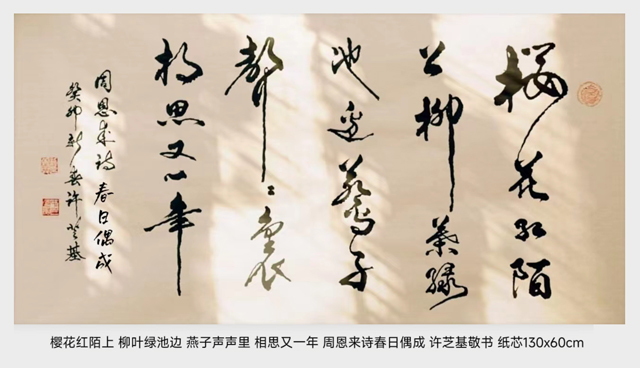 櫻花红陌
上柳葉绿
池邊燕子
聲〻裏
相思又一年
周恩来诗春日偶成
癸卯新春许芝基
樱花红陌上 柳叶绿池边 燕子声声里 相思又一年 周恩来诗春日偶成 许芝基敬书 纸芯130x60cm